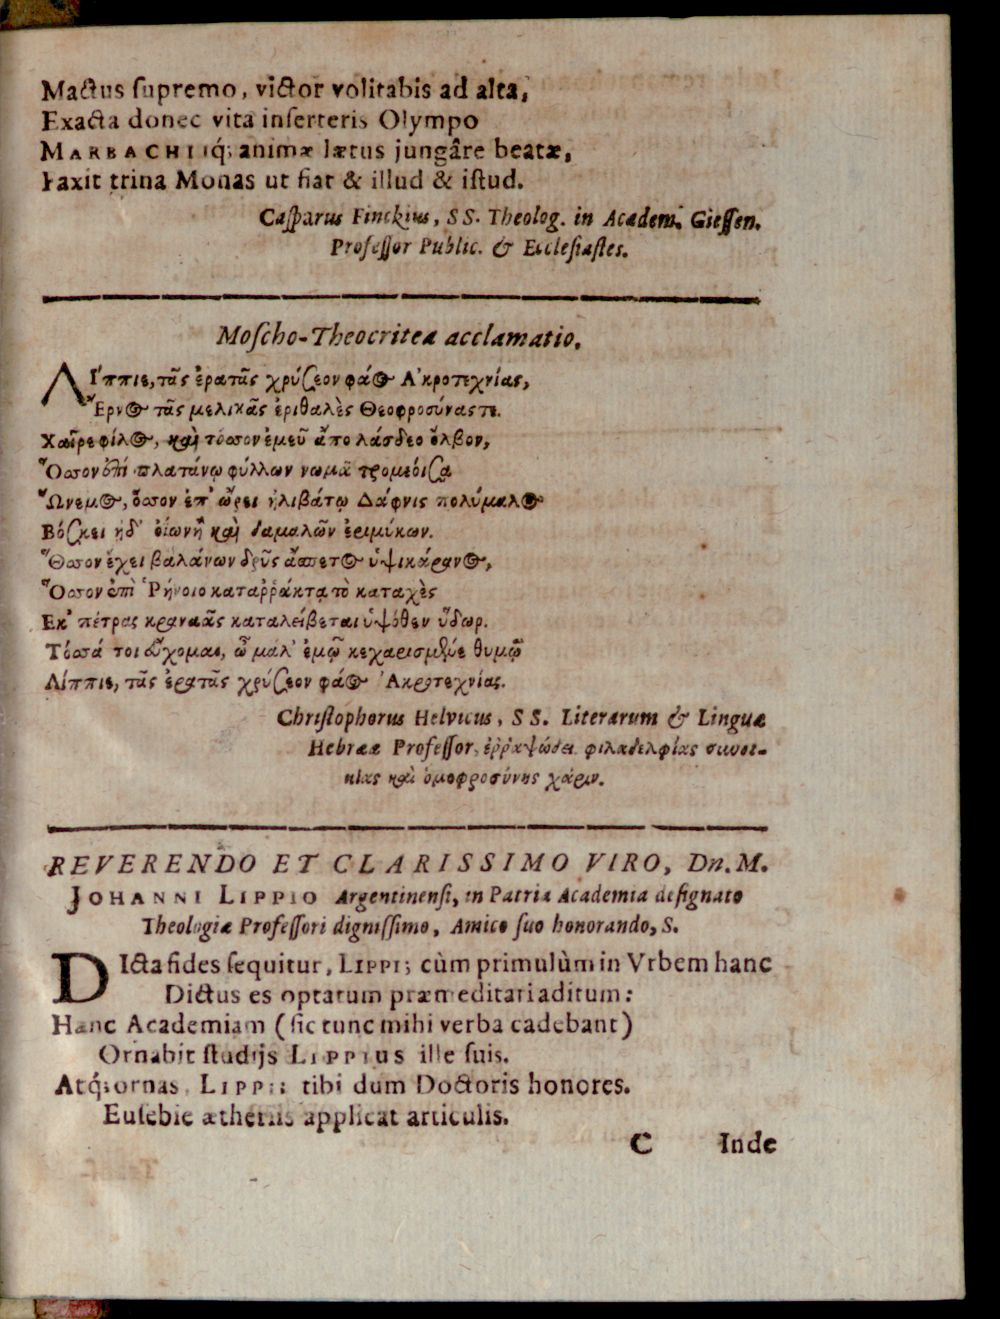 Mactus ſupremo, victor volitabis ad alta,
Exacta donec vita inſerteris Olympo
MARBACHI iq́; animæ lætus jungâre beatæ,
Faxit trina Monas ut fiat & illud & iſtud.
Caſparus Finckius, SS. Theolog. in Academ. Gieſſen.
Profeſſor Public. & Eccleſiaſtes.
Moſcho-Theocritea acclamatio.
ΛΙ῎ππιε, τᾶς ἐρατᾶς χρύζεον φά@ Ἀκροτεχνίας,
Ἔρν@ τᾶς μελικᾶς ἐριθαλὲς Θεοφροσύνας τε.
Χαῖρε φίλ@, καὶ τόσσον ἐμεῦ ἄπο λάσδεο ὄλβον,
Ὅσσον ἐπὶ πλατάνῳ φύλλων νωμᾷ τρομεόιζᾳ
Ὤνεμ@, ὅσσον ἐπ' ὤρει ἠλιβάτῳ Δάφνις πολύμαλ@
Βόζκει ἠδ' ὀϊωνῆ καὶ δαμαλῶν ἐριμύκων.
Ὅσσον ἔχει βαλάνων δρῦς ἄσπετ@ ὑψικάραν@,
Ὅσσον ἐπὶ Ῥήνοιο καταῤῥάκτᾳ τὸ καταχὲς
Ἐκ πέτρας κραναᾶς καταλείβεται ὑψόθεν ὕδωρ.
Τόσσά τοι εὔχομαι, ὦ μαλ' ἐμῷ κεχαρισμένε θυμῷ
Λίππιε, τᾶς ἐρατᾶς χρύζεον φά@ Ἀκροτεχνίας.
Chriſtophorus Helvicus, SS. Literarum & Linguæ
Hebrææ Profeſſor, ἐῤῥαψώδει φιλαδελφίας συνοι-
κίας καὶ ὁμοφροσύνης χάριν.
REVERENDO ET CLARISSIMO VIRO, Dn. M.
JOHANNI LIPPIO Argentinenſi, in Patria Academia deſignato
Theologiæ Profeſſori digniſſimo, Amico ſuo honorando, S.
DIcta fides ſequitur, LIPPI; cùm primulùm in Vrbem hanc
Dictus es optatum præmeditari aditum:
Hanc Academiam (ſic tunc mihi verba cadebant)
Ornabit ſtudijs LIPPIUS ille ſuis.
Atq́; ornas, LIPPI; tibi dum Doctoris honores.
Euſebie æthetiis applicat articulis.
C Inde